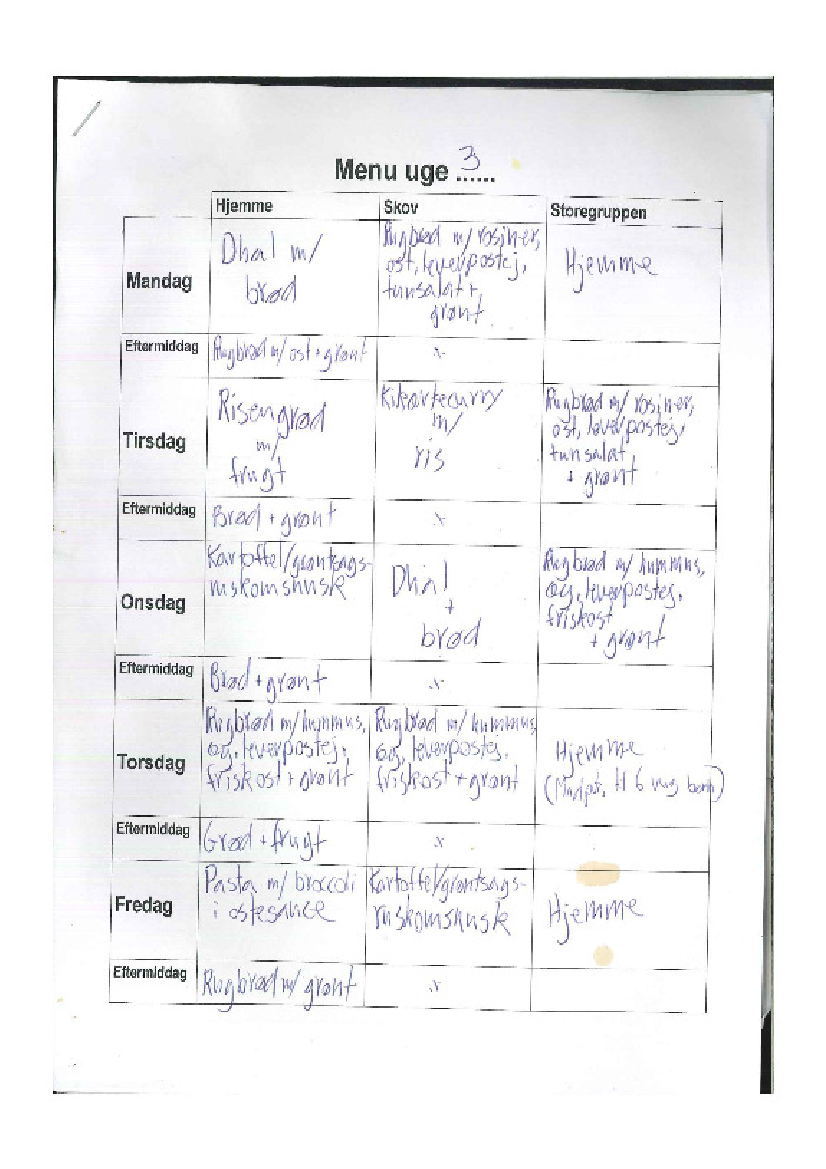 Menu uge 3
Hjemme Skov Storegruppen
Mandag
Dhal m/
brød
Rugbrød m/ rosiner,
ost, leverpostej,
tunsalat +
grønt
Hjemme
Eftermiddag
Rugbrød m/ ost + grønt
x
Tirsdag
Risengrød
m/
frugt
Kikærtecurry
m/
ris
Rugbrød m/ rosiner,
ost, leverpostej,
tunsalat
+ grønt
Eftermiddag
Brød + grønt
x
Onsdag
Kartoffel/grøntsags-
miskomsmusk
Dhal
+
brød
Rugbrød m/ hummus,
æg, leverpostej,
friskost
+ grønt
Eftermiddag
Brød + grønt
x
Torsdag
Rugbrød m/ hummus,
æg, leverpostej,
friskost + grønt
Rugbrød m/ hummus,
æg, leverpostej,
friskost + grønt
Hjemme
H 6
Eftermiddag
Grød + frugt
x
Fredag
Pasta m/ broccoli
i ostesauce
Kartoffel/grøntsags-
miskomsmusk
Hjemme
Eftermiddag
Rugbrød m/ grønt
x